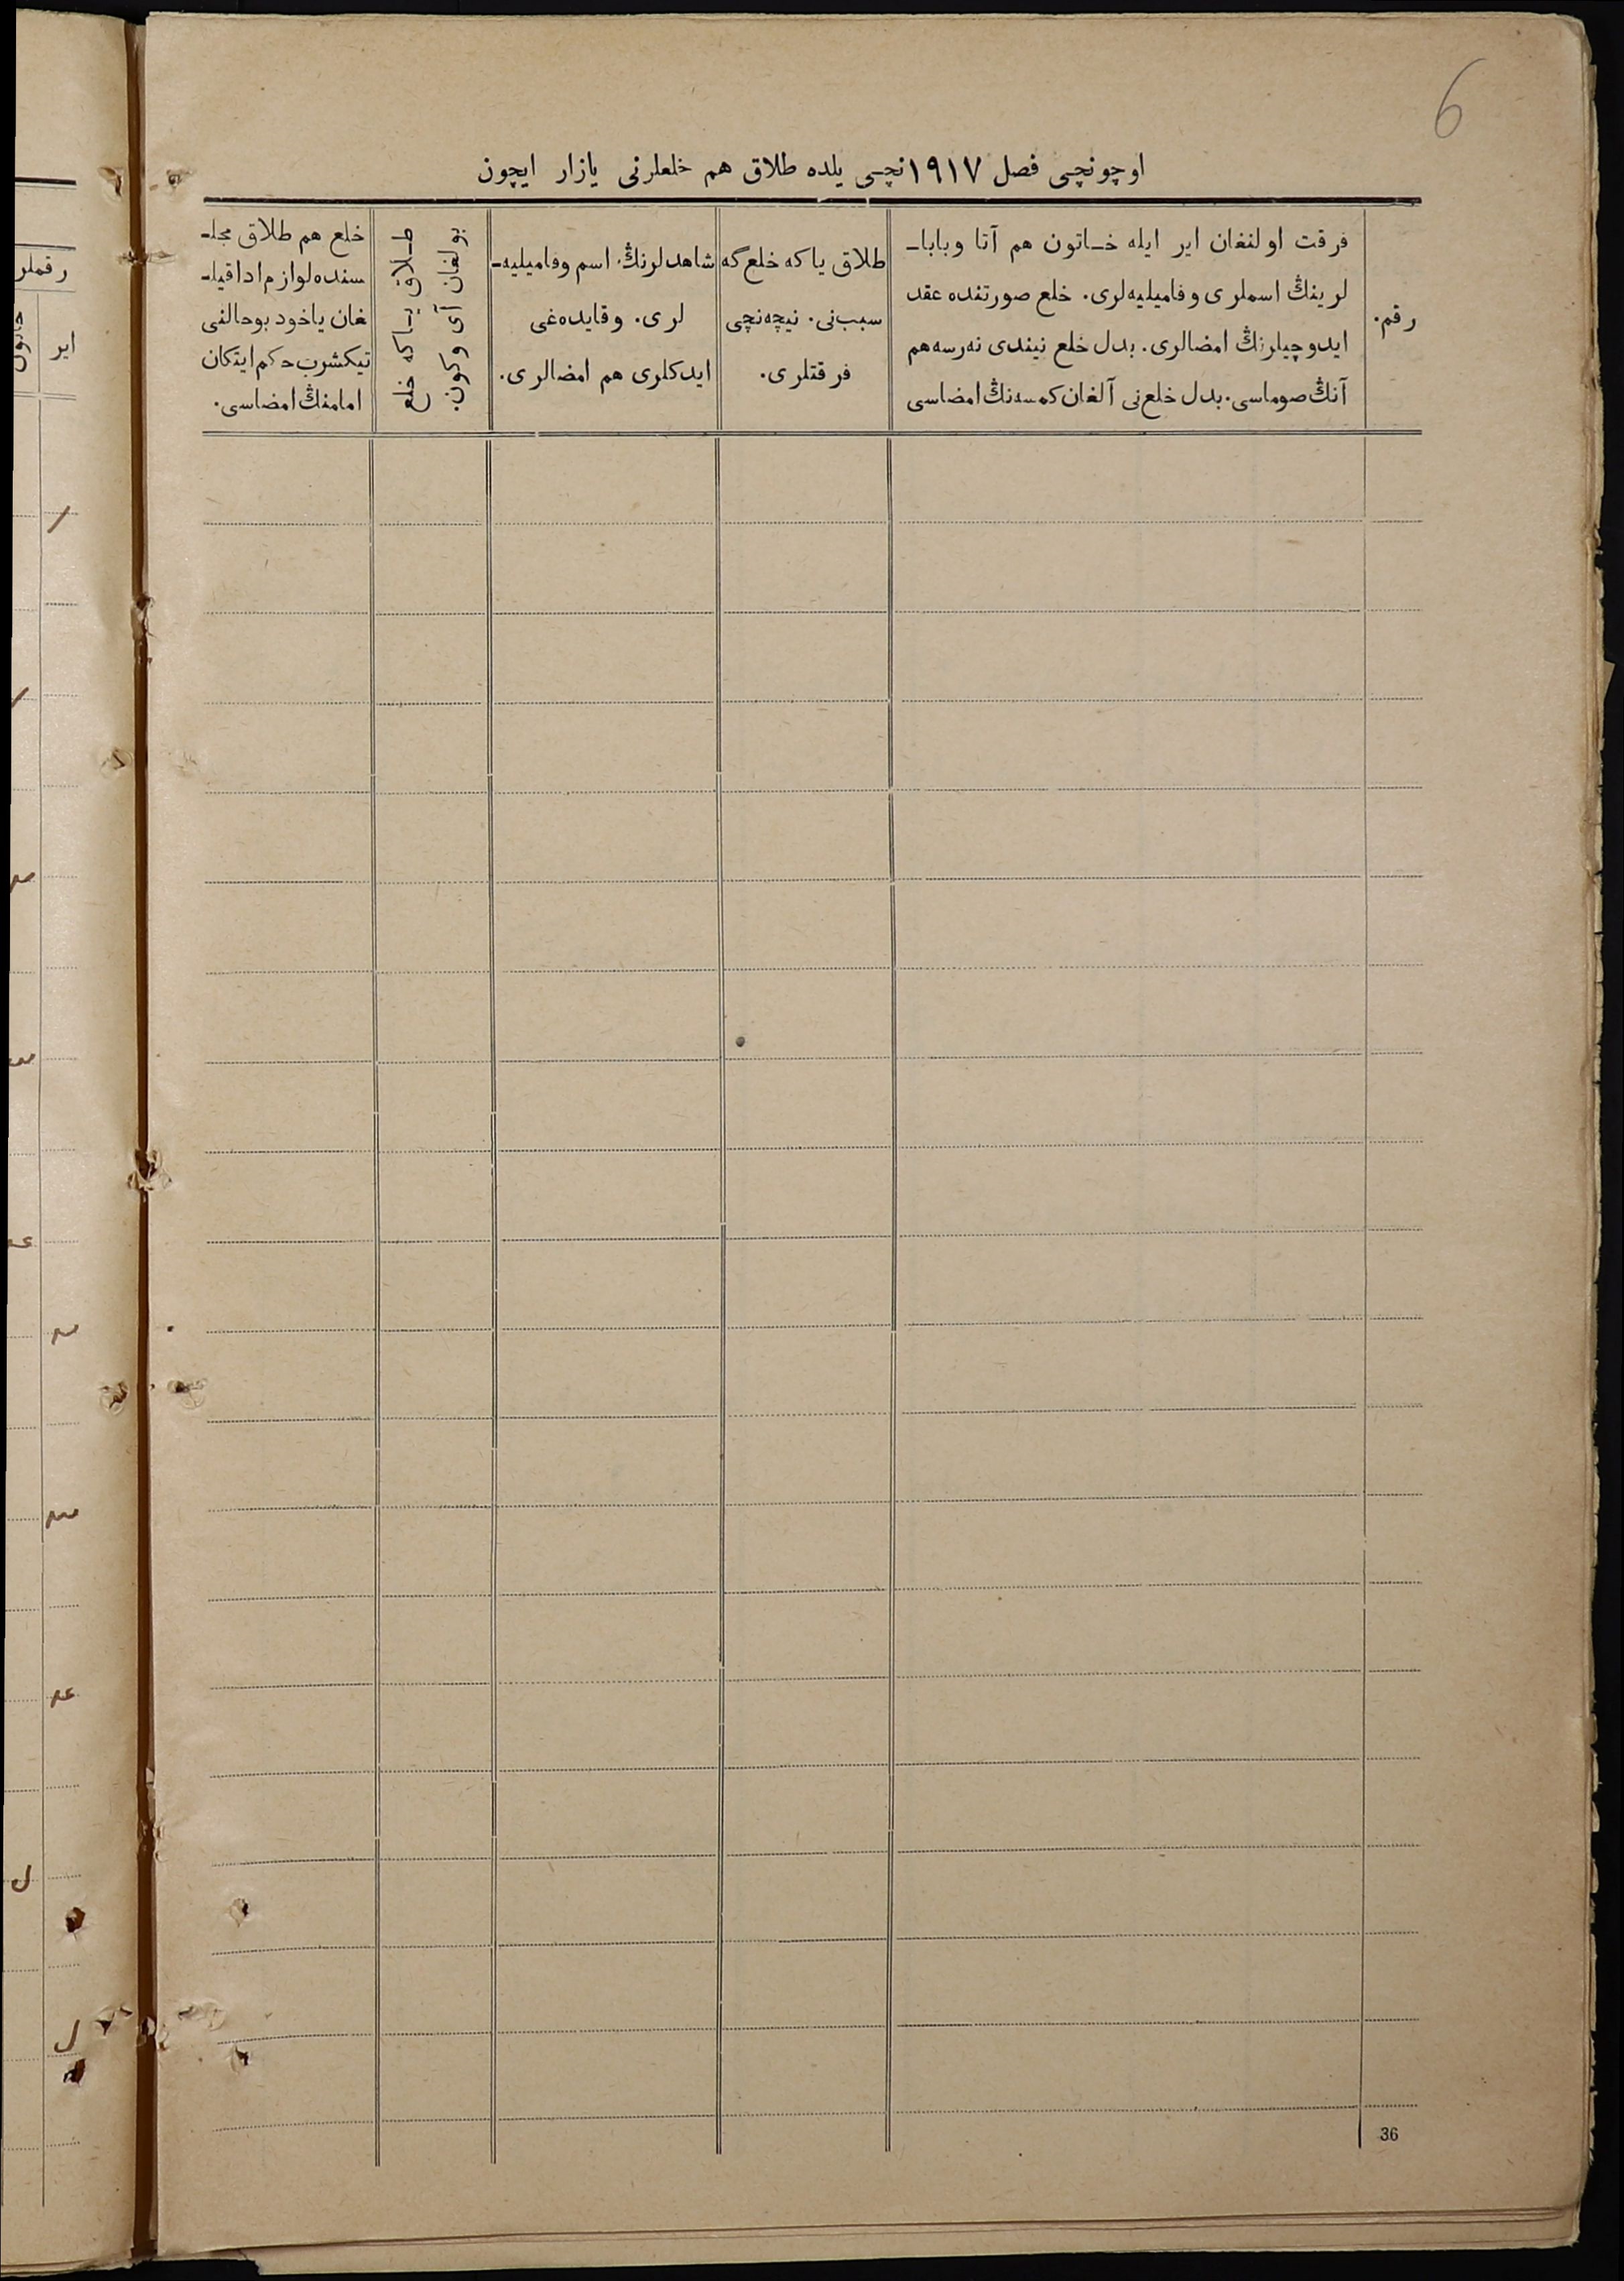 6
اوچونچی فصل ۱۹۱۷نچی یلده طلاق هم خلعلرنی یازار ایچون
رقم.
فرقت اولنغان ایر ایله خـاتون هم آتا وباباـ
لرینڭ اسملری وفامیلیه‌لری. خلع صورتنده عقد
ایدوچیلرنڭ امضالری. بدل خلع نیندی نه‌رسه هم
آنڭ صوماسی. بدل خلع‌نی آلغان کمسه‌نڭ امضاسی
طلاق یاکه خلع‌گه
سبب‌نی. نیچه‌نچی
فرقتلری.
شاهدلرنڭ اسم وفامیلیه‌ـ
لری. وقایده‌غی
ایدکلری هم امضالری.
طـلاق یـاکه خلع
بولغان آی وکون.
خلع هم طلاق مجلـ
سنده لوازم اداقیلـ
غان یاخود بوحالنی
تیکشرب حکم ایتکان
امامنڭ امضاسی.
36
رقملر
ایر
خاتون